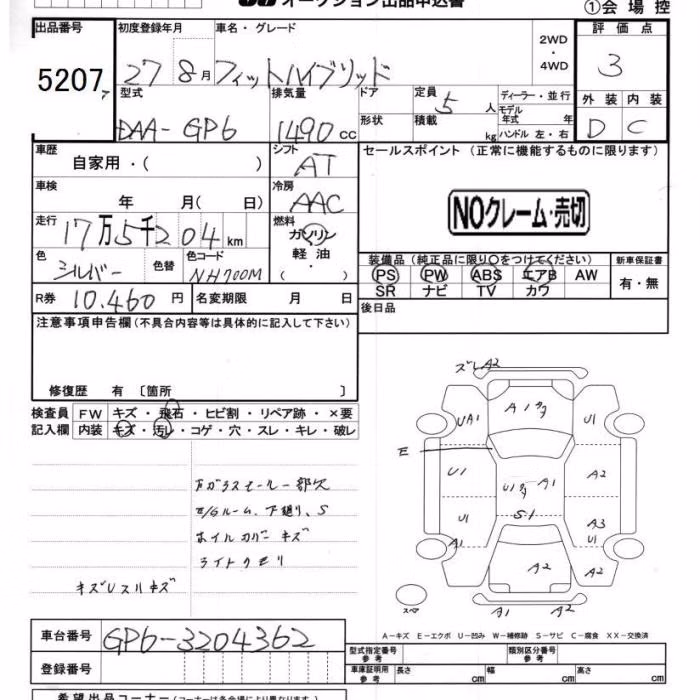 オークション出品申込書
①会場控
出品番号 5207
初度登録年月 27 8月
車名・グレード フィットハイブリッド
2WD・4WD
評価点 3
外装 D 内装 C
型式 DAA-GP6
排気量 1490 cc
ドア
形状
定員 5 人
積載 kg
ディーラー・並行
モデル年式 年
ハンドル 左・右
車歴 自家用・( )
シフト AT
セールスポイント (正常に機能するものに限ります)
NOクレーム・売切
車検 年 月( 日)
冷房 AAC
走行 17万5千204km
燃料 ガソリン 軽油・( )
色 シルバー 色替
色コード NH700M
装備品 (純正品に限り○をつけてください)
PS PW ABS エアB AW
SR ナビ TV カワ
新車保証書 有・無
R券 10,460円
名変期限 月 日
後日品
注意事項申告欄 (不具合内容等は具体的に記入して下さい)
修復歴 有 〔箇所 〕
検査員記入欄
FW キズ・飛石・ヒビ割・リペア跡・×要
内装 キズ・汚レ・コゲ・穴・スレ・キレ・破レ
Fガラスモール一部欠
E/Gルーム、下廻り、S
ホイルカバーキズ
ライトクモリ
ズレ A2
A1
UA1 U1
E
U1 A1 A2
S1
U1 A3
A1
A2 A2
スペア A1 A2
A-キズ E-エクボ U-凹み W-補修跡 S-サビ C-腐食 XX-交換済
車台番号 GP6-3204362
登録番号
型式指定番号 参考
類別区分番号 参考
車庫証明用 参考 長さ cm 幅 cm 高さ cm
希望出品コーナー (コーナーは各会場により異なります)